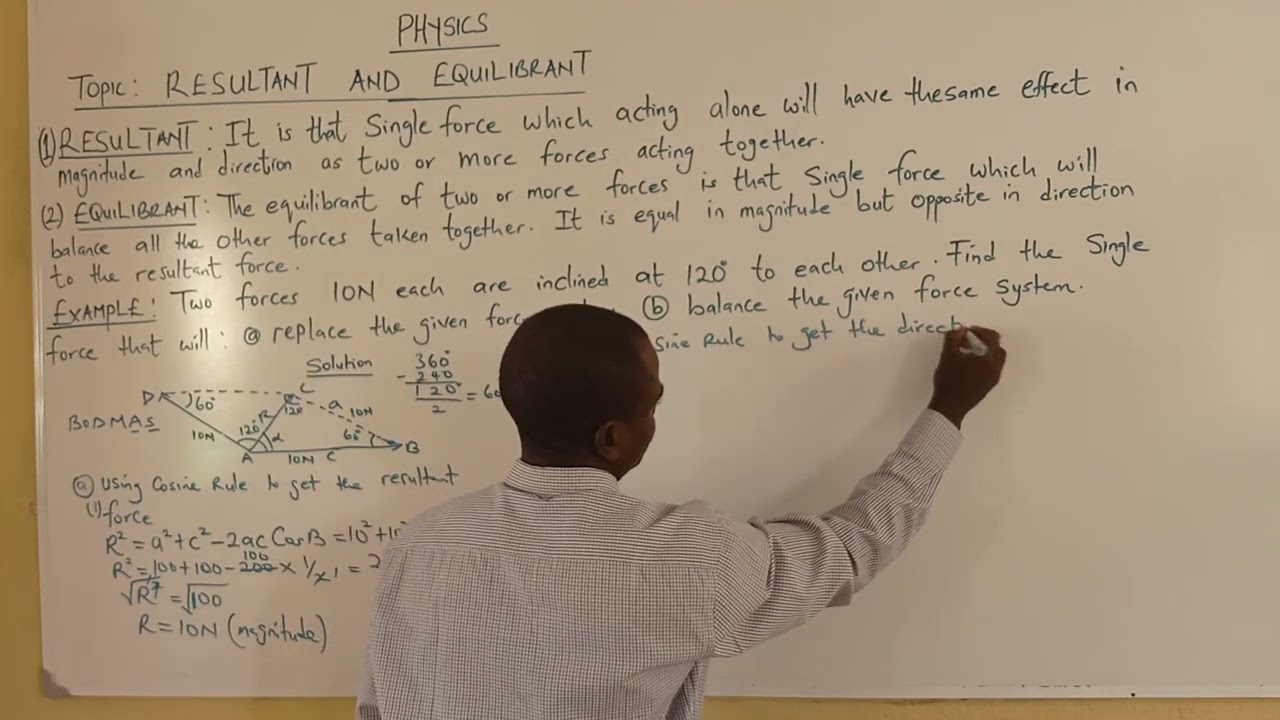 PHYSICS
TOPIC: RESULTANT AND EQUILIBRANT
(1) RESULTANT: It is that Single force which acting alone will have thesame effect in
magnitude and direction as two or more forces acting together.
(2) EQUILIBRANT: The equilibrant of two or more forces is that Single force which will
balance all the other forces taken together. It is equal in magnitude but opposite in direction
to the resultant force.
EXAMPLE: Two forces 10N each are inclined at 120° to each other. Find the Single
force that will: (a) replace the given (b) balance the given force system.
Sine Rule to get the direct
Solution
360°
- 240
120°
2
= 60
D
60°
C
120
R
a
10N
BODMAS
10N
120°
α
60°
B
A
10N
C
(a) Using Cosine Rule to get the resultant
(i) force
R² = a² + c² - 2ac Cos B = 10² + 10²
100
R² = 100 + 100 - 200 × 1/2 = 2
√R² = √100
R = 10N (magnitude)